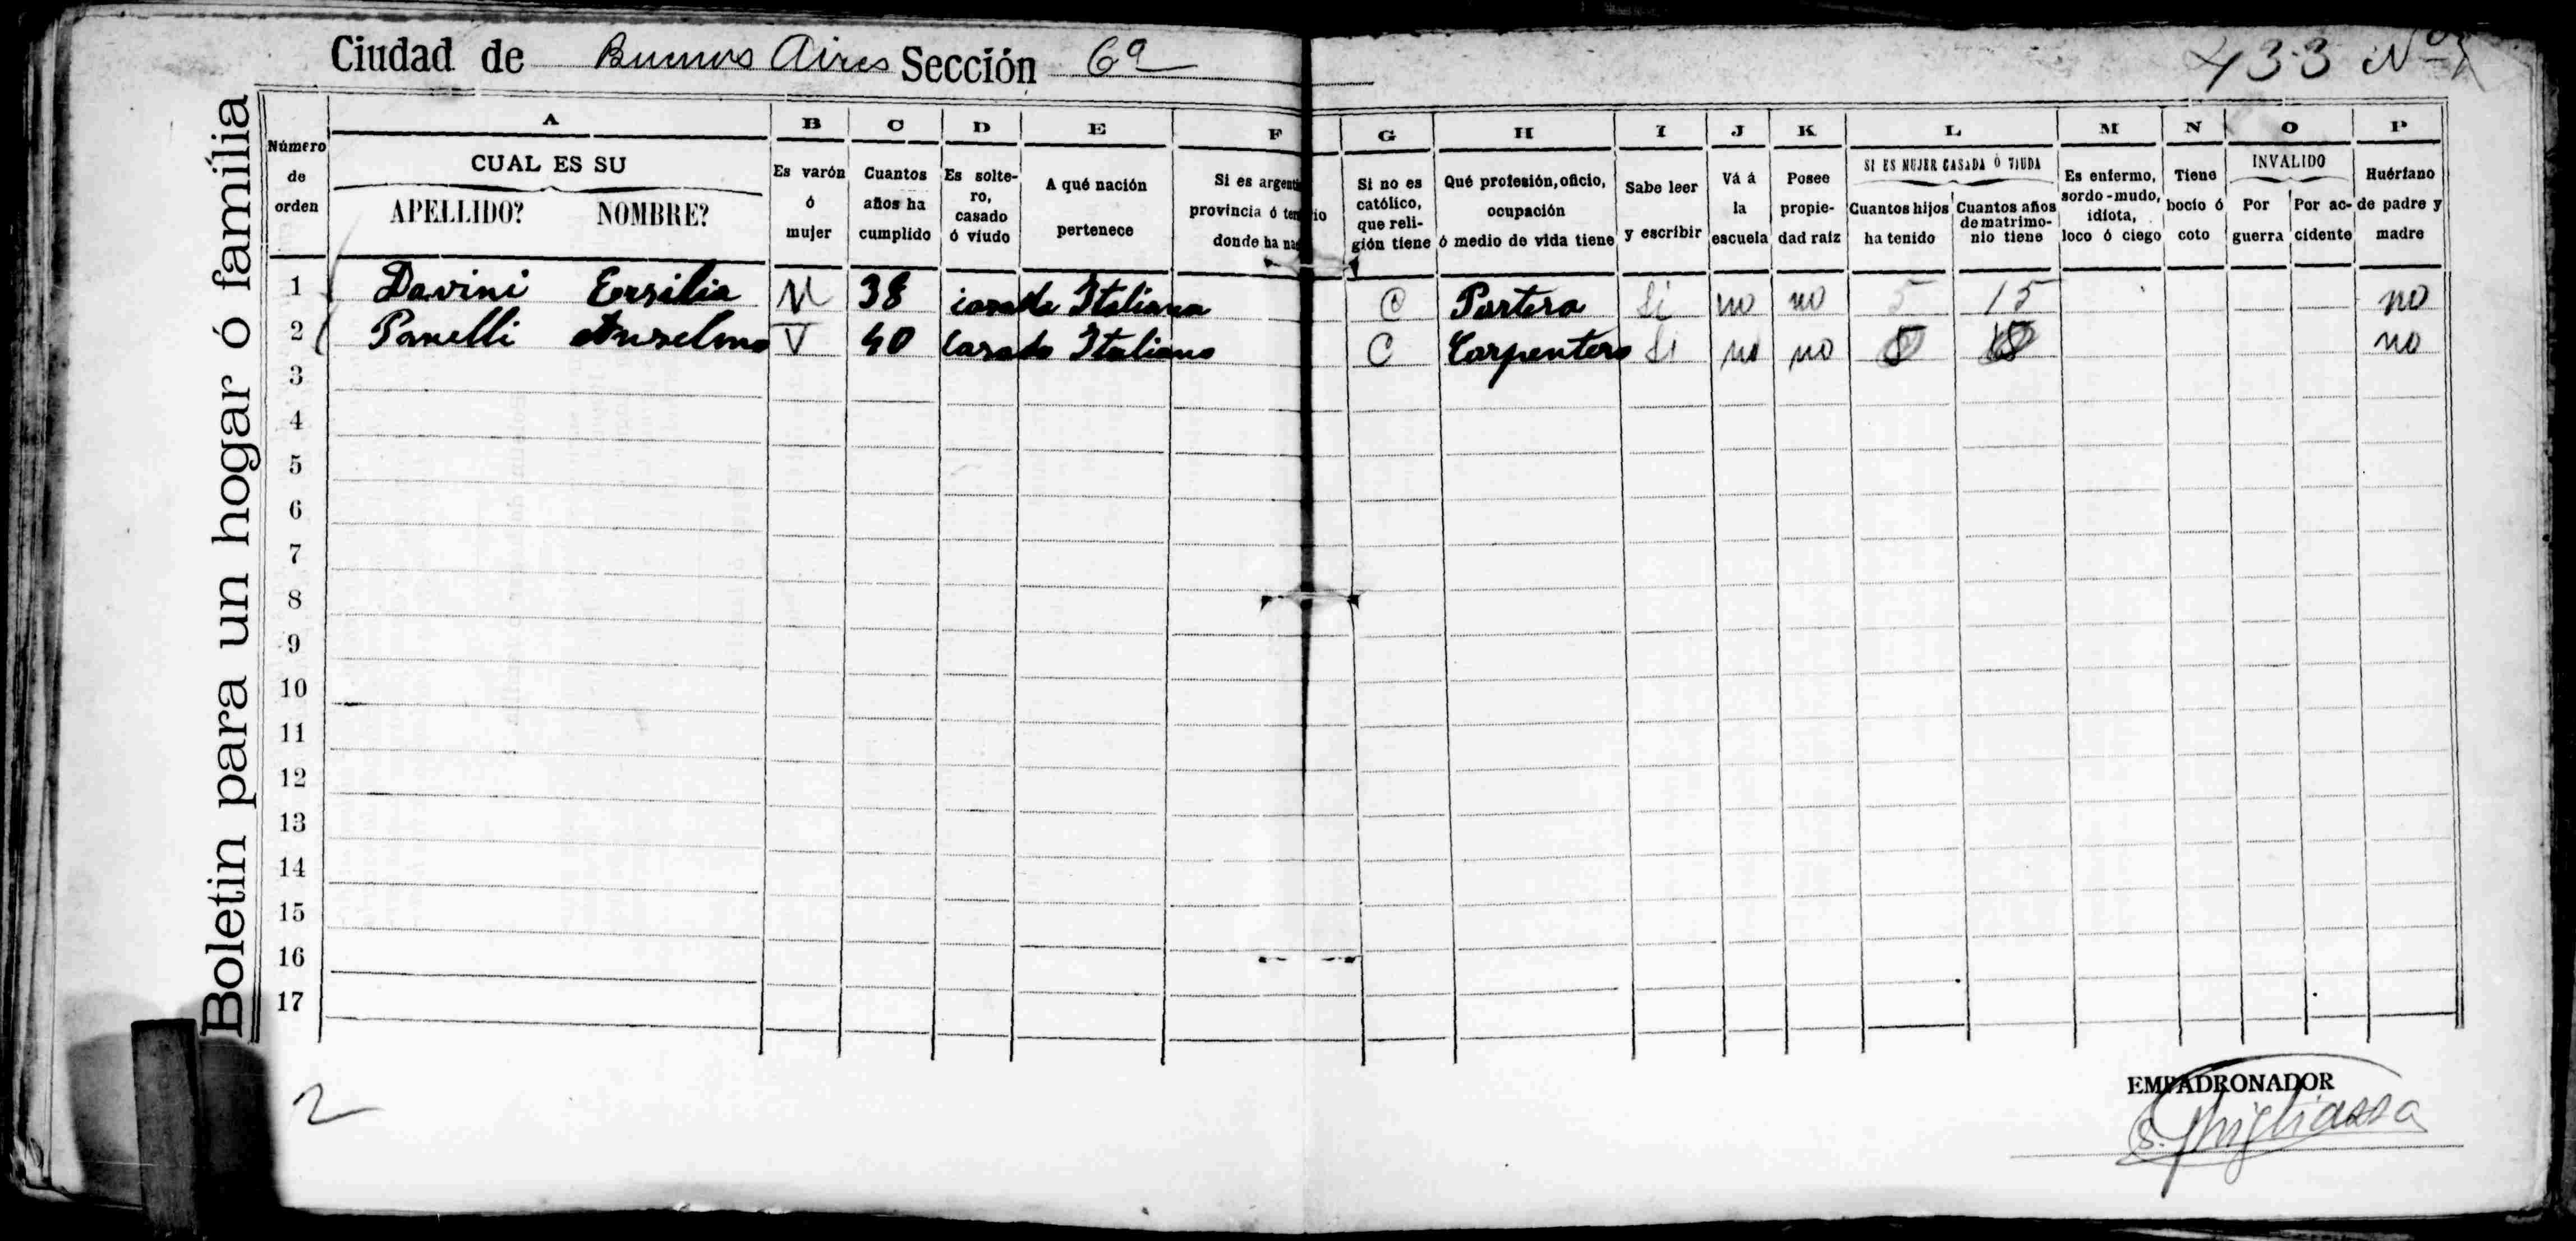 Ciudad de Buenos Aires Sección 6a
433 No
Boletin para un hogar ó família
Número de orden
A
CUAL ES SU
APELLIDO? NOMBRE?
B
Es varón ó mujer
C
Cuantos años ha cumplido
D
Es solte-ro, casado ó viudo
E
A qué nación pertenece
F
Si es argenti
provincia ó ter io
donde ha na
G
Si no es católico, que reli-gión tiene
H
Qué profesión, oficio, ocupación ó medio de vida tiene
I
Sabe leer y escribir
J
Vá á la escuela
K
Posee propie-dad raiz
L
SI ES MUJER CASADA Ó VIUDA
Cuantos hijos ha tenido
Cuantos años de matrimo-nio tiene
M
Es enfermo, sordo-mudo, idiota, loco ó ciego
N
Tiene bocio ó coto
O
INVALIDO
Por guerra
Por ac-cidente
P
Huérfano de padre y madre
1 Davini Ersilia M 38 casada Italiana C Portera Si no no 5 15 no
2 Panelli Anselmo V 40 Casado Italiano C Carpentero Si no no 5 15 no
3
4
5
6
7
8
9
10
11
12
13
14
15
16
17
2
EMPADRONADOR